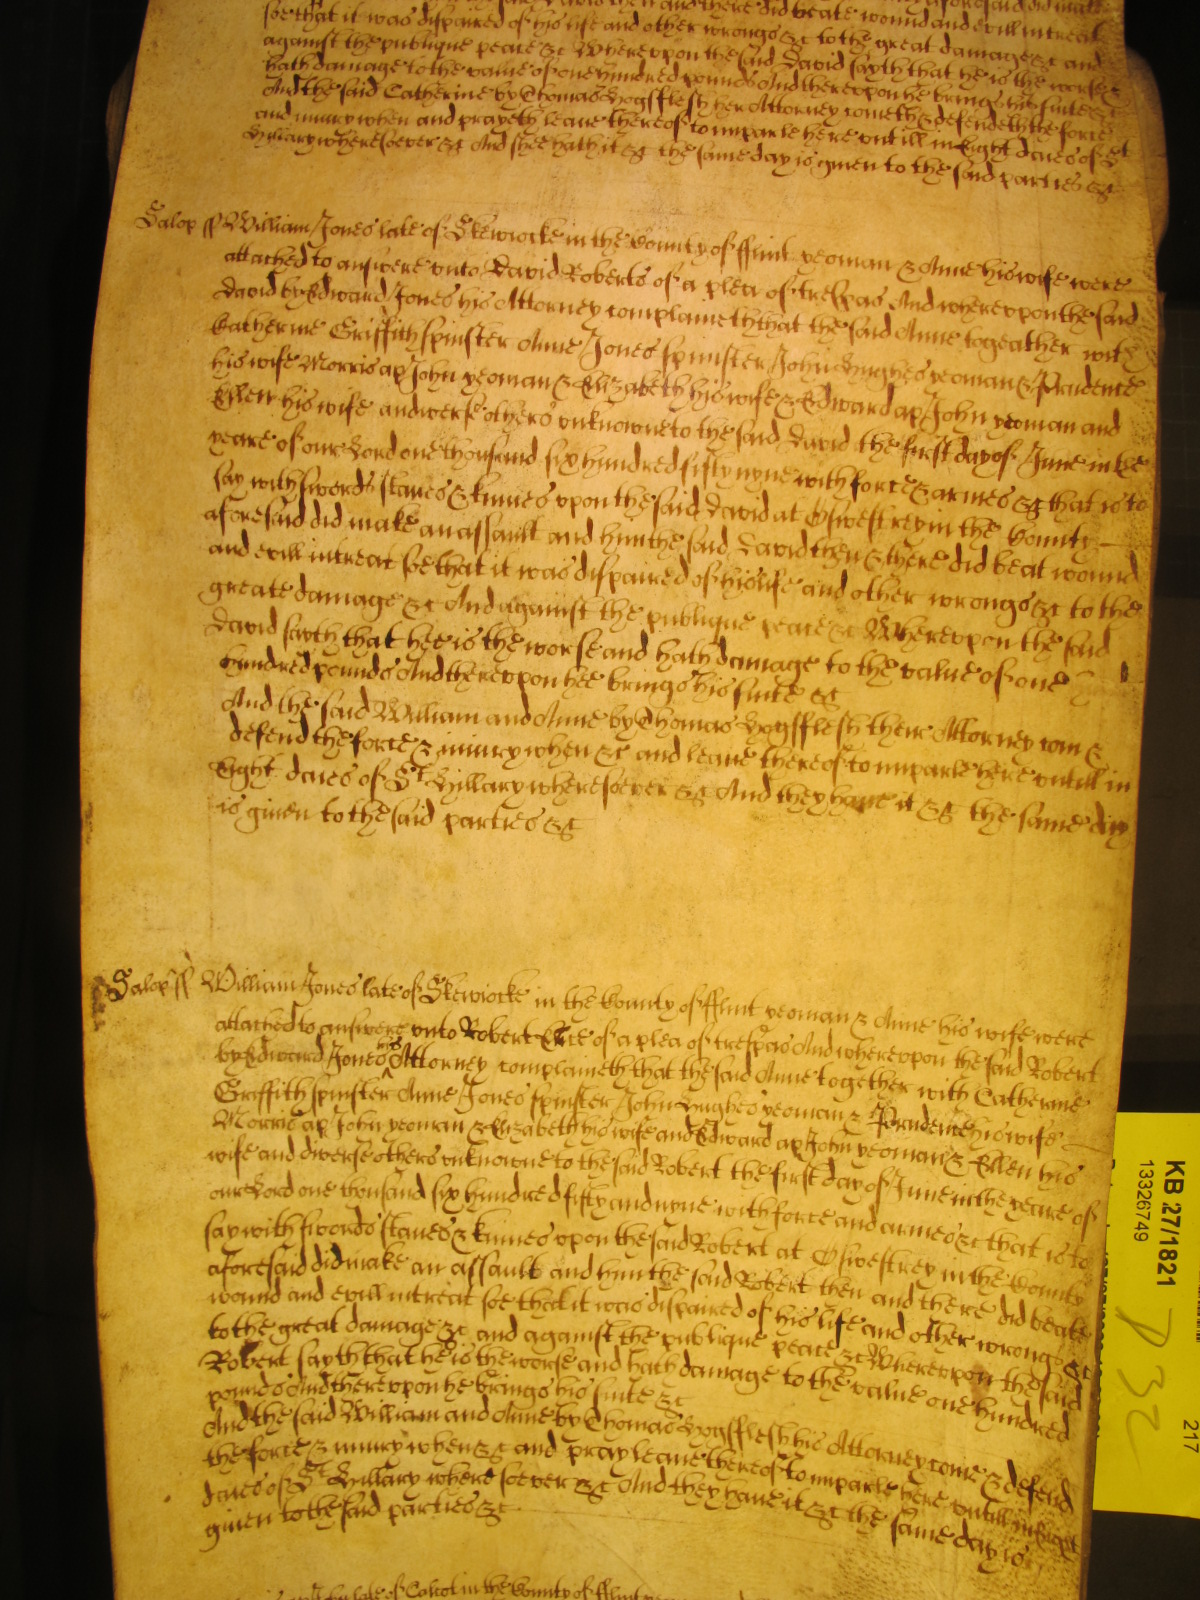 soe that it was dispaired of his life and other wrongs &c to the great damage &c and
against the publique peace &c Wherevpon the said David sayth that he is the worse &
hath damage to the value of one hundred pounds And therevpon he brings his suite &c
And the said Catherine by Thomas Hogsflesh her Attorney cometh & defendeth the force
and iniury when and prayeth leaue thereof to imparle here vntill in Eight daies of St
Hillary wheresoever &c And shee hath it &c the same day is giuen to the said parties &c
Salop ss William Jones late of Skewiocke in the County of fflint yeoman & Anne his wife were
attached to answere vnto David Roberts of a plea of trespas And wherevpon the said
David by Edward Jones his Attorney complaineth that the said Anne togeather with
Katherine Griffith spinster Anne Jones spinster John Hughes yeoman & Prudence
his wife Morris ap John yeoman & Elizabeth his wife & Edward ap John yeoman and
Ellen his wife and others vnknowne to the said David the first day of June in the
yeare of our Lord one thousand six hundred fifty nyne with force & armes &c that is to
say with swords staues & kniues vpon the said David at Oswestrey in the County
aforesaid did make an assault and him the said David then & there did beat wound
and evill intreat soe that it was dispaired of his life and other wrongs &c to the
greate damage &c And against the publique peace &c Wherevpon the said
David sayth that hee is the worse and hath damage to the value of one
hundred pounds And therevpon hee brings his suite &c
And the said William and Anne by Thomas Hogsflesh their Attorney com &
defend the force & iniury when &c and leaue thereof to imparle here vntill in
Eight daies of St Hillary wheresoever &c And they haue it &c the same day
is giuen to the said parties &c
Salop ss William Jones late of Skewiocke in the County of fflint yeoman & Anne his wife were
attached to answere vnto Robert of a plea of trespas And wherevpon the said Robert
by Edward Jones his Attorney complaineth that the said Anne together with Catherine
Griffith spinster Anne Jones spinster John Hughes yeoman & Prudence his wife
Morris ap John yeoman & Elizabeth his wife and Edward ap John yeoman & Ellen his
wife and diverse others vnknowne to the said Robert the first day of June in the yeare of
our Lord one thousand six hundred fifty and nyne with force and armes &c that is to
say with swords staues & kniues vpon the said Robert at Oswestrey in the County
aforesaid did make an assault and him the said Robert then and there did beate
wound and evill intreat soe that it was dispaired of his life and other wrongs &c
to the great damage &c and against the publique peace &c Wherevpon the said
Robert sayth that he is the worse and hath damage to the value one hundred
pounds And therevpon he brings his suite &c
And the said William and Anne by Thomas Hogsflesh his Attorney come & defend
the force & iniury when &c and pray leaue thereof to imparle here vntill in Eight
daies of St Hillary where soever &c And they haue it &c the same day is
giuen to the said parties &c
late of in the County of fflint
KB 27/1821
13326749
217
P 32